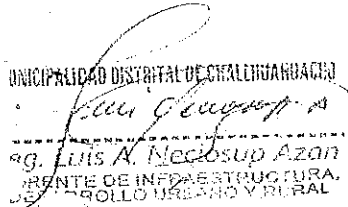 MUNICIPALIDAD DISTRITAL DE CHALLHUAHUACHO
Ing. Luis A. Neciosup Azan
GERENTE DE INFRAESTRUCTURA,
DESARROLLO URBANO Y RURAL